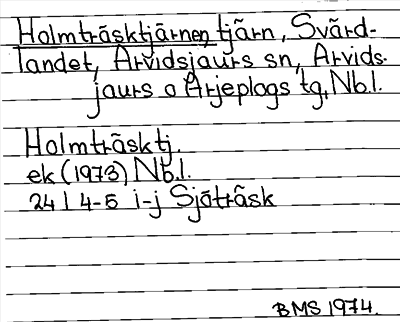 Holmträsktjärnen tjärn, Svärd-
landet, Arvidsjaurs sn, Arvids-
jaurs o Arjeplogs tg, Nb.l.
Holmträsktj.
ek (1973) Nb.l.
24 I 4-5 i-j Sjöträsk
BMS 1974.